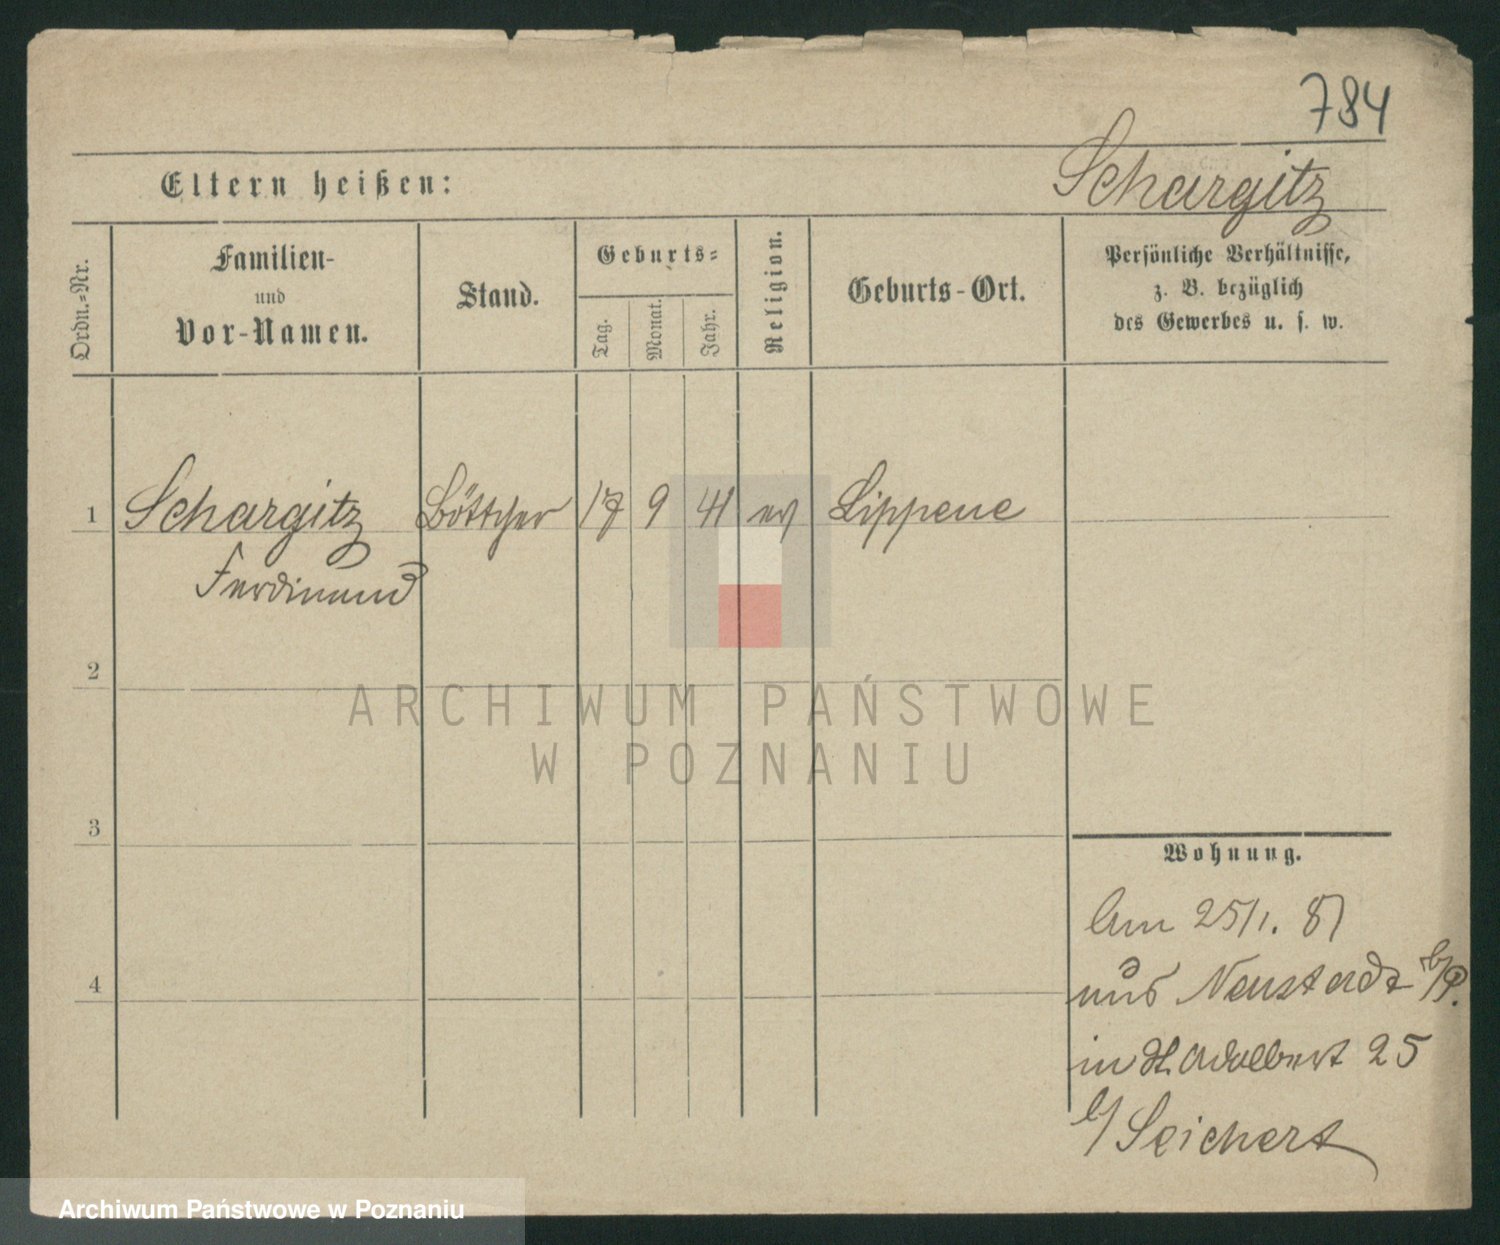 784
Schargitz
Eltern heißen:
Ordn.=Nr.
Familien-
und
Vor-Namen.
Stand.
Geburts=
Tag.
Monat.
Jahr.
Religion.
Geburts-Ort.
Persönliche Verhältnisse,
z. B. bezüglich
des Gewerbes u. s. w.
1 Schargitz Böttcher 17 9 41 ev Lippene
Ferdinand
2
3
4
Wohnung.
Am 25/1. 81
aus Neustadt b/P.
in St. Adalbert 25
b/ Seichert
ARCHIWUM PAŃSTWOWE
W POZNANIU
Archiwum Państwowe w Poznaniu